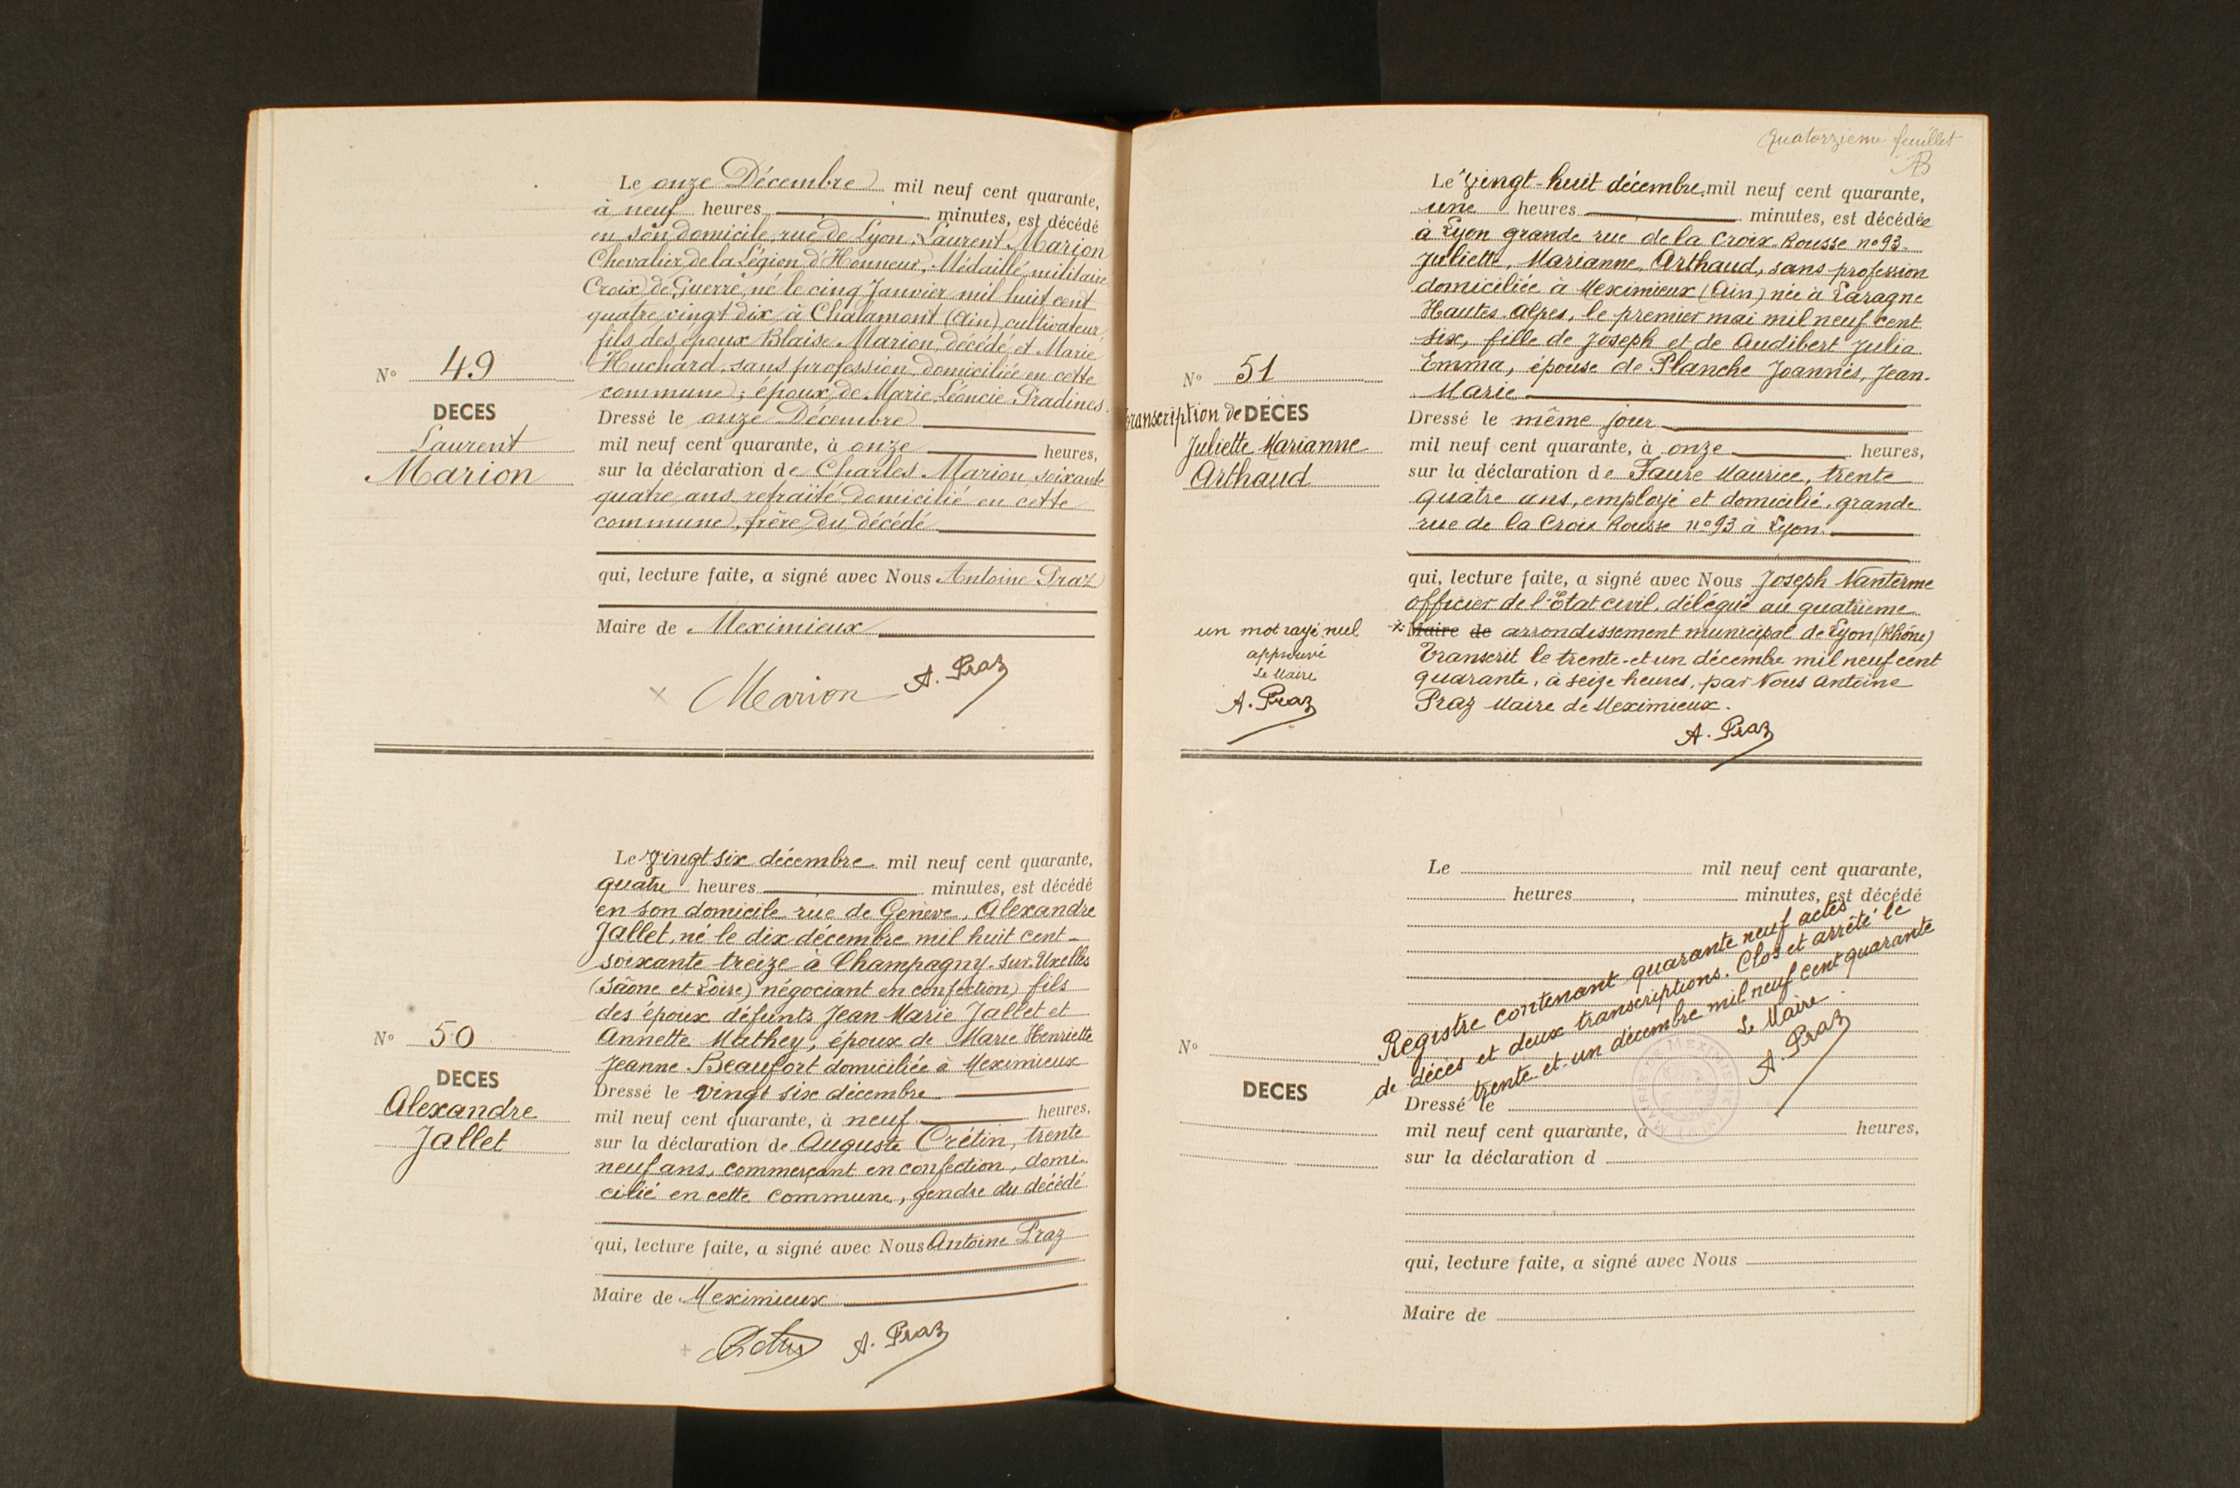 Le onze Décembre mil neuf cent quarante,
à neuf heures minutes, est décédé
en son domicile rue de Lyon, Laurent Marion
Chevalier de la Légion d'Honneur, Médaillé militaire
Croix de Guerre, né le cinq Janvier mil huit cent
quatre vingt dix à Chalamont (Ain) cultivateur,
fils des époux Blaise Marion, décédé, et Marie
Huchard, sans profession, domiciliée en cette
commune; époux de Marie Léoncie Pradines.
Nº 49
DECES
Laurent
Marion
Dressé le onze Décembre
mil neuf cent quarante, à onze heures,
sur la déclaration de Charles Marion, soixante
quatre ans, retraité domicilié en cette
commune, frère du décédé
qui, lecture faite, a signé avec Nous Antoine Praz
Maire de Meximieux
Marion A. Praz
Le Vingt six décembre mil neuf cent quarante,
quatre heures minutes, est décédé
en son domicile rue de Genève, Alexandre
Jallet, né le dix décembre mil huit cent
soixante treize à Champagny-sur-Uxelles
(Saône et Loire) négociant en confection, fils
des époux défunts Jean Marie Jallet et
Annette Mathey, époux de Marie Henriette
Jeanne Beaufort domiciliée à Meximieux
Nº 50
DECES
Alexandre
Jallet
Dressé le vingt six décembre
mil neuf cent quarante, à neuf heures,
sur la déclaration de Auguste Crétin, trente
neuf ans, commerçant en confection, domi-
cilié en cette commune, gendre du décédé
qui, lecture faite, a signé avec Nous Antoine Praz
Maire de Meximieux
A. Praz
Quatorzième feuillet
Le Vingt-huit décembre mil neuf cent quarante,
une heures minutes, est décédée
à Lyon grande rue de la Croix-Rousse nº 93
Juliette, Marianne, Arthaud, sans profession
domiciliée à Meximieux (Ain) née à Laragne
Hautes-Alpes, le premier mai mil neuf cent
six, fille de Joseph et de Audibert Julia
Emma, épouse de Planche Joannès, Jean-
Marie
Nº 51
transcription de DÉCÈS
Juliette Marianne
Arthaud
Dressé le même jour
mil neuf cent quarante, à onze heures,
sur la déclaration de Faure Maurice, trente
quatre ans, employé et domicilié, grande
rue de la Croix Rousse nº 93 à Lyon.
qui, lecture faite, a signé avec Nous Joseph Nanterme
officier de l'Etat civil, délégué au quatrième
Maire de arrondissement municipal de Lyon (Rhône)
Transcrit le trente-et un décembre mil neuf cent
quarante, à seize heures, par Nous Antoine
Praz Maire de Meximieux.
A. Praz
un mot rayé nul
approuvé
Le Maire
A. Praz
Le mil neuf cent quarante,
heures, minutes, est décédé
Registre contenant quarante neuf actes
de décès et deux transcriptions. Clos et arrêté le
trente-et-un décembre mil neuf cent quarante
Le Maire
A. Praz
Nº
DECES
Dressé le
mil neuf cent quarante, à heures,
sur la déclaration d
qui, lecture faite, a signé avec Nous
Maire de